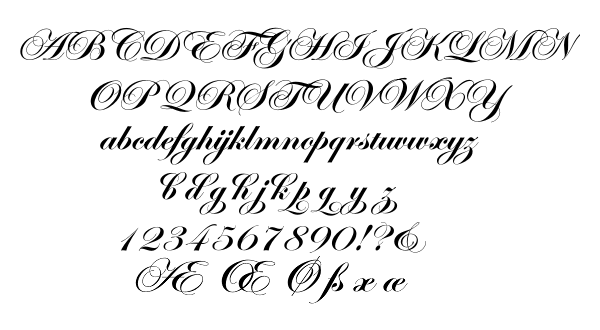 ABCDEFGHIJKLMN
OPQRSTUVWXY
abcdefghijklmnopqrstuvwxyz
b d g h j k p q y z
1234567890!?&
Æ Œ Ø ß æ œ